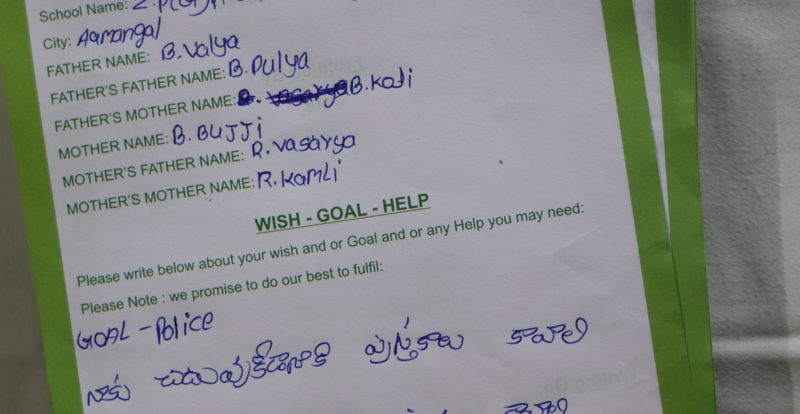 School Name: Z.P(G)H
City: Aamangal
FATHER NAME: B.Valya
FATHER'S FATHER NAME: B.Pulya
FATHER'S MOTHER NAME: B.Kali
MOTHER NAME: B.BUJJi
MOTHER'S FATHER NAME: R.Vasarya
MOTHER'S MOTHER NAME: R.KamLi
WISH - GOAL - HELP
Please write below about your wish and or Goal and or any Help you may need:
Please Note : we promise to do our best to fulfil:
GOAL - Police
నాకు చదువుకోడానికి పుస్తకాలు కావాలి
కావాలి